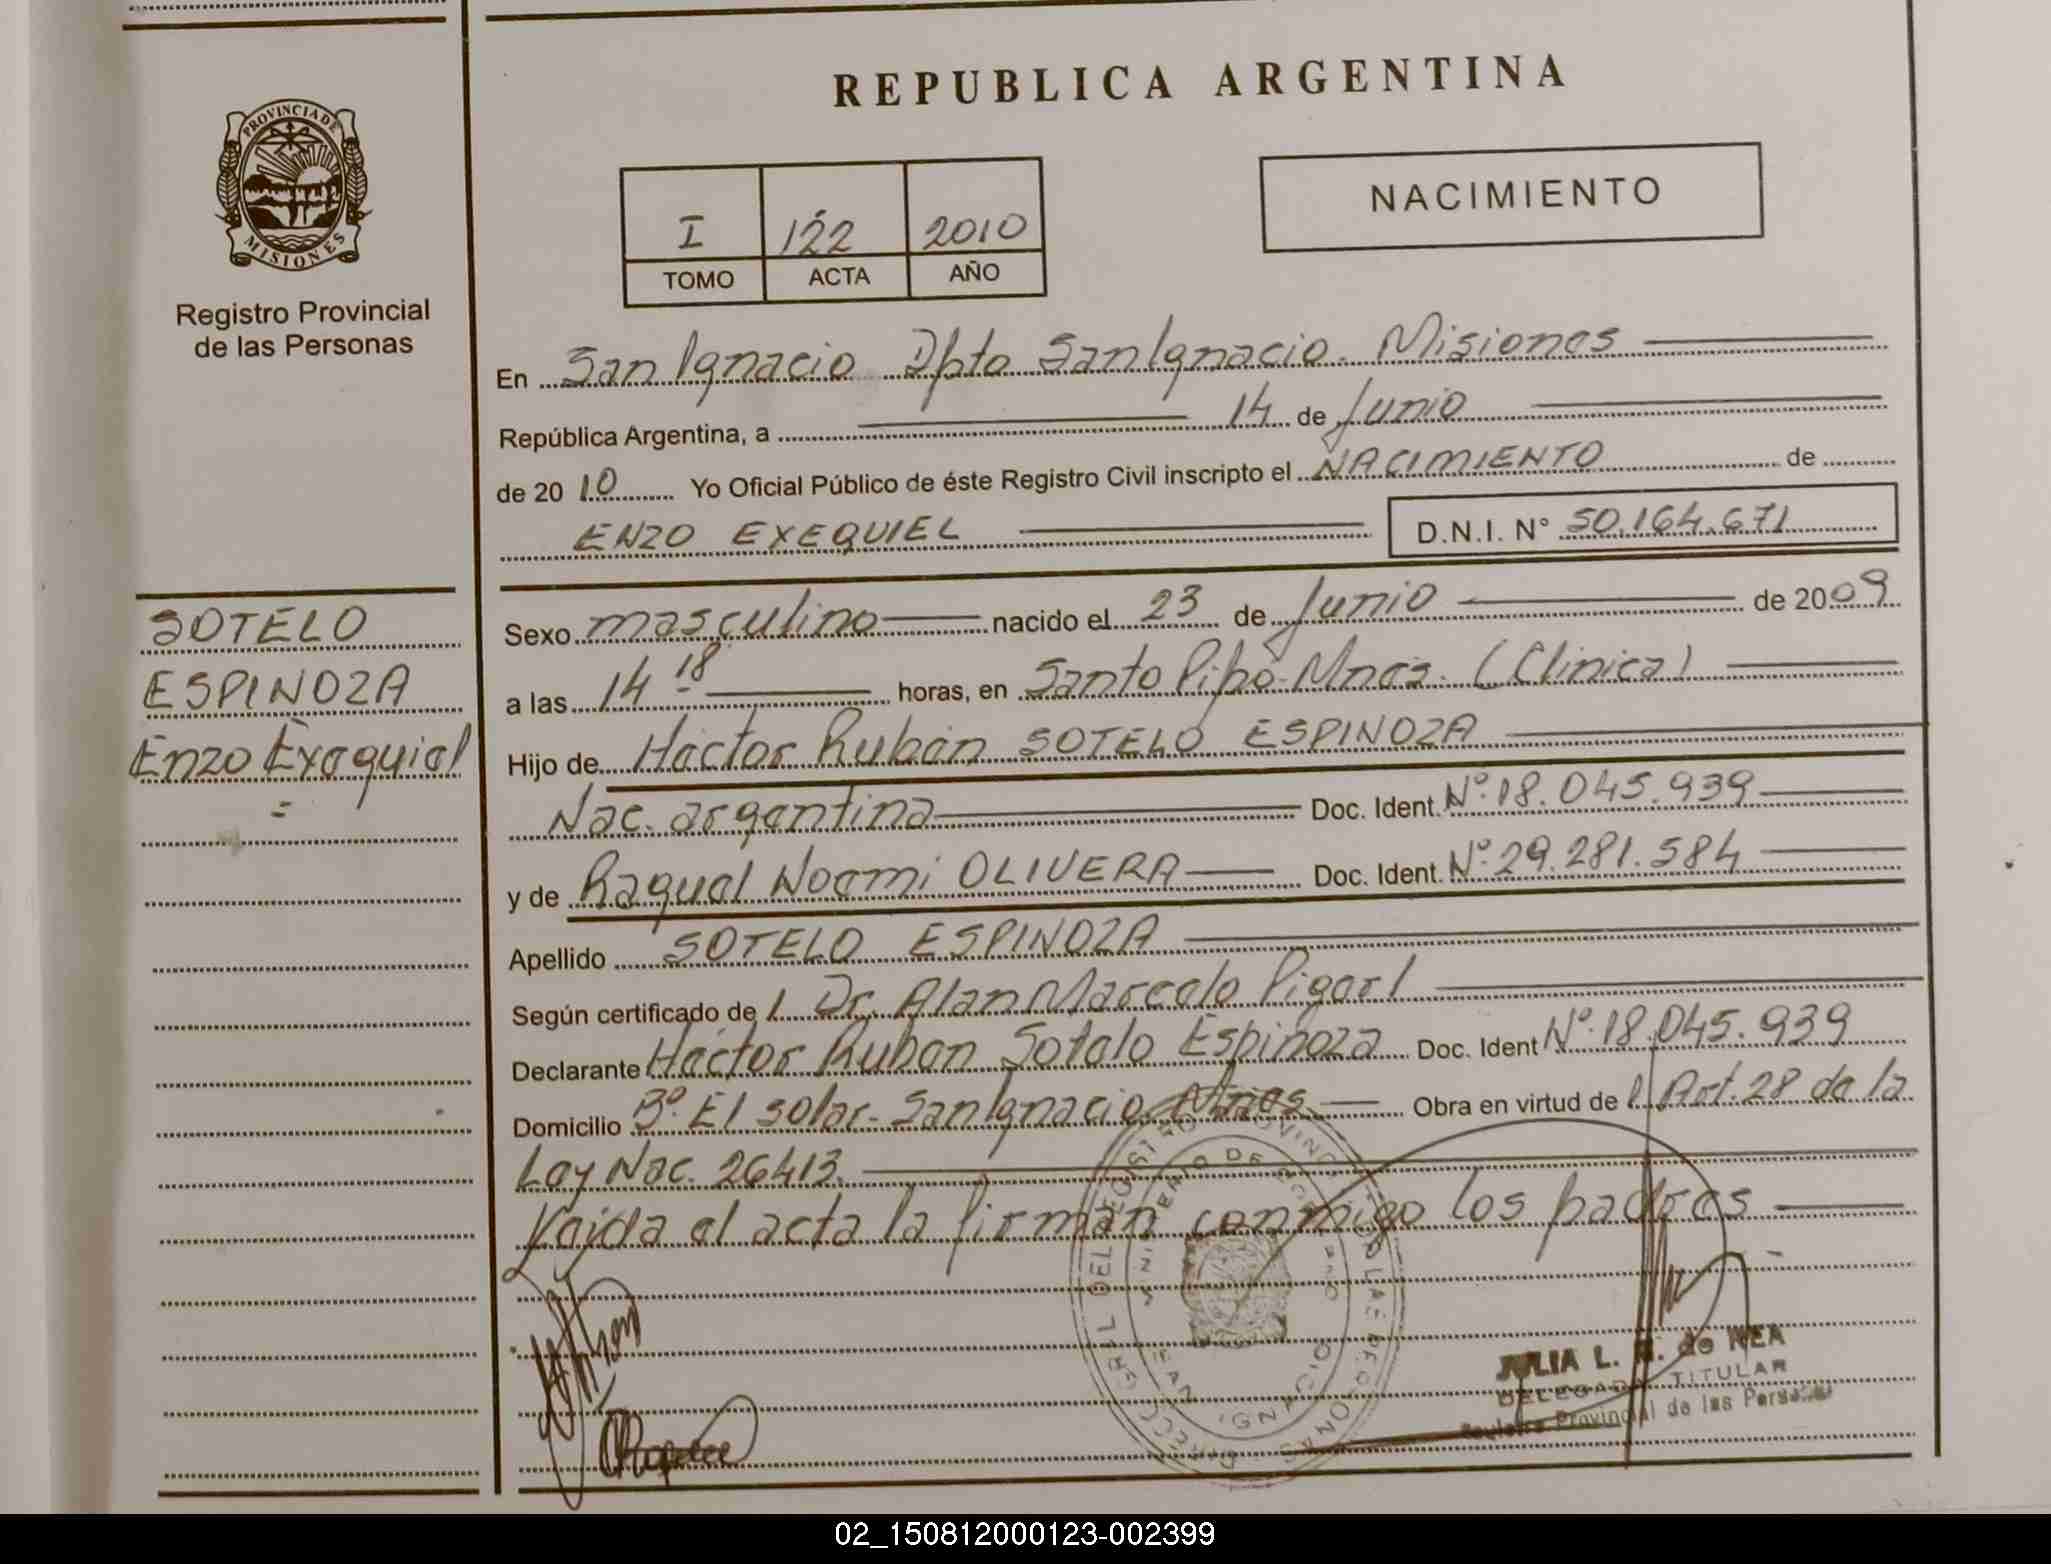 REPUBLICA ARGENTINA
PROVINCIA DE
MISIONES
Registro Provincial
de las Personas
I 122 2010
TOMO ACTA AÑO
NACIMIENTO
En San Ignacio Dpto San Ignacio. Misiones
República Argentina, a 14 de Junio
de 20 10 Yo Oficial Público de éste Registro Civil inscripto el NACIMIENTO de
ENZO EXEQUIEL D.N.I. N° 50.164.671
SOTELO
ESPINOZA
Enzo Exequiel
=
Sexo masculino nacido el 23 de Junio de 2009
a las 14 18 horas, en Santo Pipó-Mnes. (Clinica)
Hijo de Héctor Rubén SOTELO ESPINOZA
Nac. argentina Doc. Ident. Nº 18.045.939
y de Raquel Noemi OLIVERA Doc. Ident. Nº 29.281.584
Apellido SOTELO ESPINOZA
Según certificado de l Dr. Alan Marcelo Pigerl
Declarante Héctor Ruben Sotelo Espinoza Doc. Ident Nº 18.045.939
Domicilio Bº El solar-San Ignacio Mnes Obra en virtud de l Art. 28 de la
Ley Nac. 26413.
Leída el acta la firman conmigo los padres
JULIA L. R. de NEA
DELEGADA TITULAR
Provincial de las Personas
02_150812000123-002399